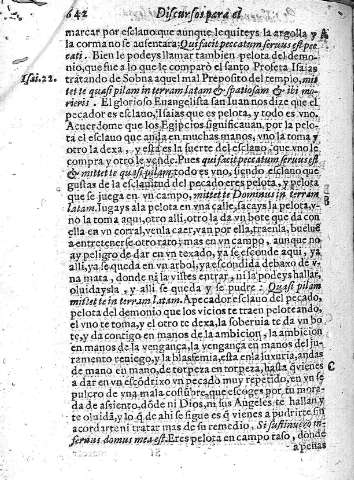 642 Discursos para el
marcar por esclauo, que aunque le quiteys la argolla y
la corma no se ausentara: Qui facit peccatum seruus est pec
cati. Bien le podeys llamar tambien pelota del demo-
nio, que fue a lo que le comparò el santo Profeta Isaias
Isai.22. tratando de Sobna aquel mal Preposito del templo, mit
tet te quasi pilam in terram latam & spatiosam & ibi mo
rieris. El glorioso Euangelista san Iuan nos dize que el
pecador es esclauo, Isaias que es pelota, y todo es vno.
Acuerdome que los Egipcios significauan, por la pelo
ta el esclauo que anda en muchas manos, vno la toma y
otro la dexa, y estâ es la suerte del esclauo, que vno le
compra y otro le vende. Pues qui facit peccatum seruus est
& mittet te quasi pilam, todo es vno, siendo esclauo que
gustas de la esclauitud del pecado eres pelota, y pelota
que se juega en vn campo, mittet te Dominus in terram
latam. Iugays a la pelota en vna calle, sacays la pelota, v-
no la toma aqui, otro alli, otro la da vn bote que da con
ella en vn corral, venla caer, van por ella, traenla, buelue
a entretenerse otro rato; mas en vn campo, aunque no
ay peligro de dar en vn texado, ya se esconde aqui, ya
alli, ya se queda en vn arbol, ya escondida debaxo de v-
na mata, donde ni la vistes entrar, ni la podeys hallar,
oluidaysla, y alli se queda y se pudre: Quasi pilam
mittet te in terram latam. A pecador esclauo del pecado,
pelota del demonio que los vicios te traen peloteando,
el vno te toma, y el otro te dexa, la soberuia te da vn bo
te, y da contigo en manos de la ambicion, la ambicion
en manos de la vengança, la vengança en manos del ju-
ramento reniego, y la blasfemia, esta en la luxuria, andas
de mano en mano, de torpeza en torpeza, hasta q̃ vienes
a dar en vn escõdrixo vn pecado muy repetido, en vn se
pulcro de vna mala costũbre, que escoges por tu mora-
da de asiento, dõde ni Dios, ni sus Angeles te hallan y
te oluida, y lo q̃ de ahi se sigue es q̃ vienes a pudrirte sin
acordarte ni tratar mas de su remedio, Si sustinuero in-
fernus domus mea est. Eres pelota en campo raso, donde
a penas
A
B
C